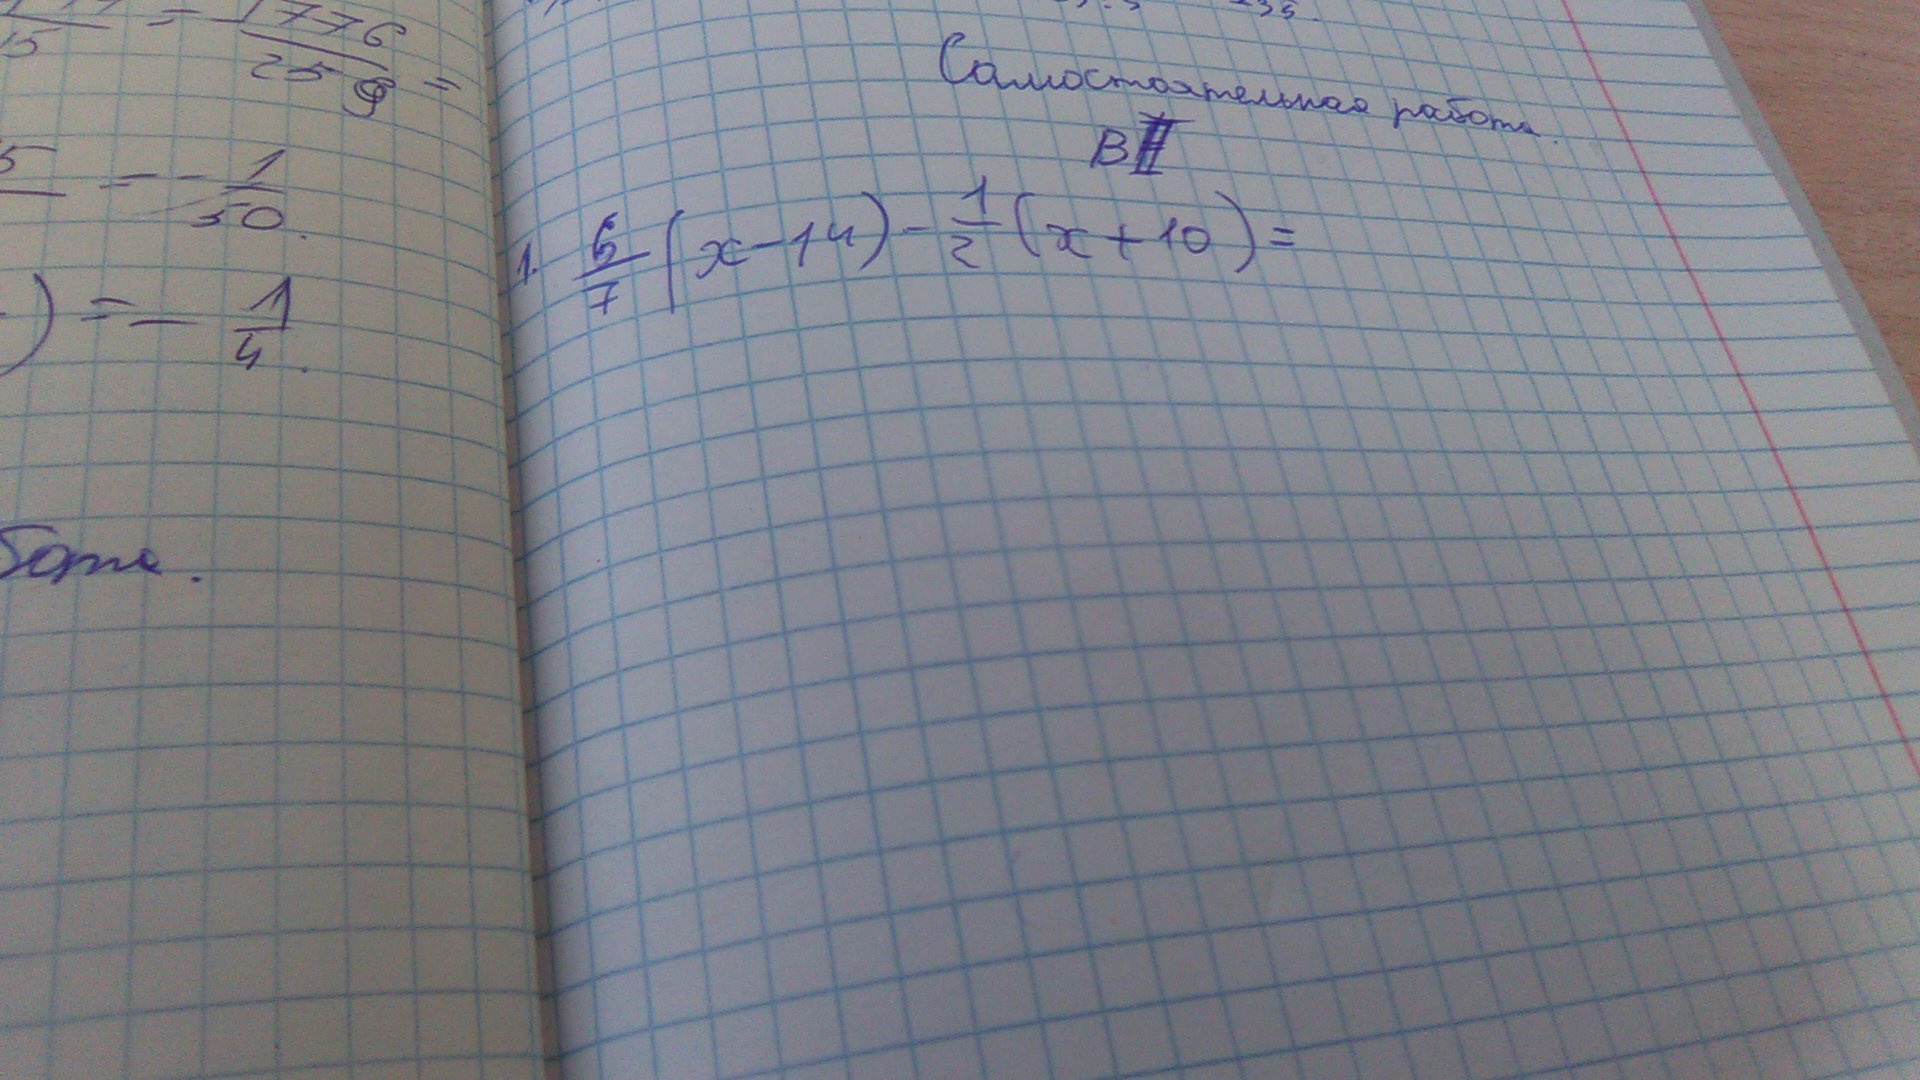 = 1776/259 =
= - 1/50.
) = - 1/4.
Самостоятельная работа.
В II
1. 6/7 (x-14) - 1/2 (x+10) =